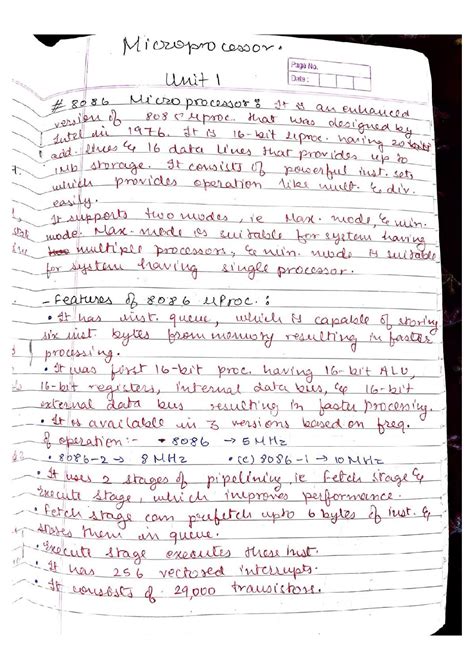 Microprocessor.
Page No.
Date:
Unit 1
# 8086 Microprocessor: It is an enhanced
version of 8085 Uproc. that was designed by
Intel in 1976. It is 16-bit Uproc. having 20
add. lines & 16 data lines that provides up to
1Mb storage. It consists of powerful inst. sets
which provides operation like mult. & div.
easily.
It supports two modes, ie Max. mode, & min.
mode. Max. mode is suitable for system having
multiple processors, & min. mode is suitable
for system having single processor.
- Features of 8086 UProc. :
• It has inst. queue, which is capable of storing
six inst. bytes from memory resulting in faster
processing.
• It was first 16-bit proc. having 16-bit ALU,
16-bit registers, internal data bus, & 16-bit
external data bus resulting in faster processing.
• It is available in 3 versions based on freq.
of operation:- • 8086 → 5MHz
• 8086-2 → 8MHz • (c) 8086-1 → 10MHz
• It uses 2 stages of pipelining, ie Fetch Stage &
Execute Stage, which improves performance.
• Fetch Stage can prefetch upto 6 bytes of inst. &
stores them in queue.
• Execute Stage executes these inst.
• It has 256 vectored interrupts.
• It consists of 29,000 transistors.